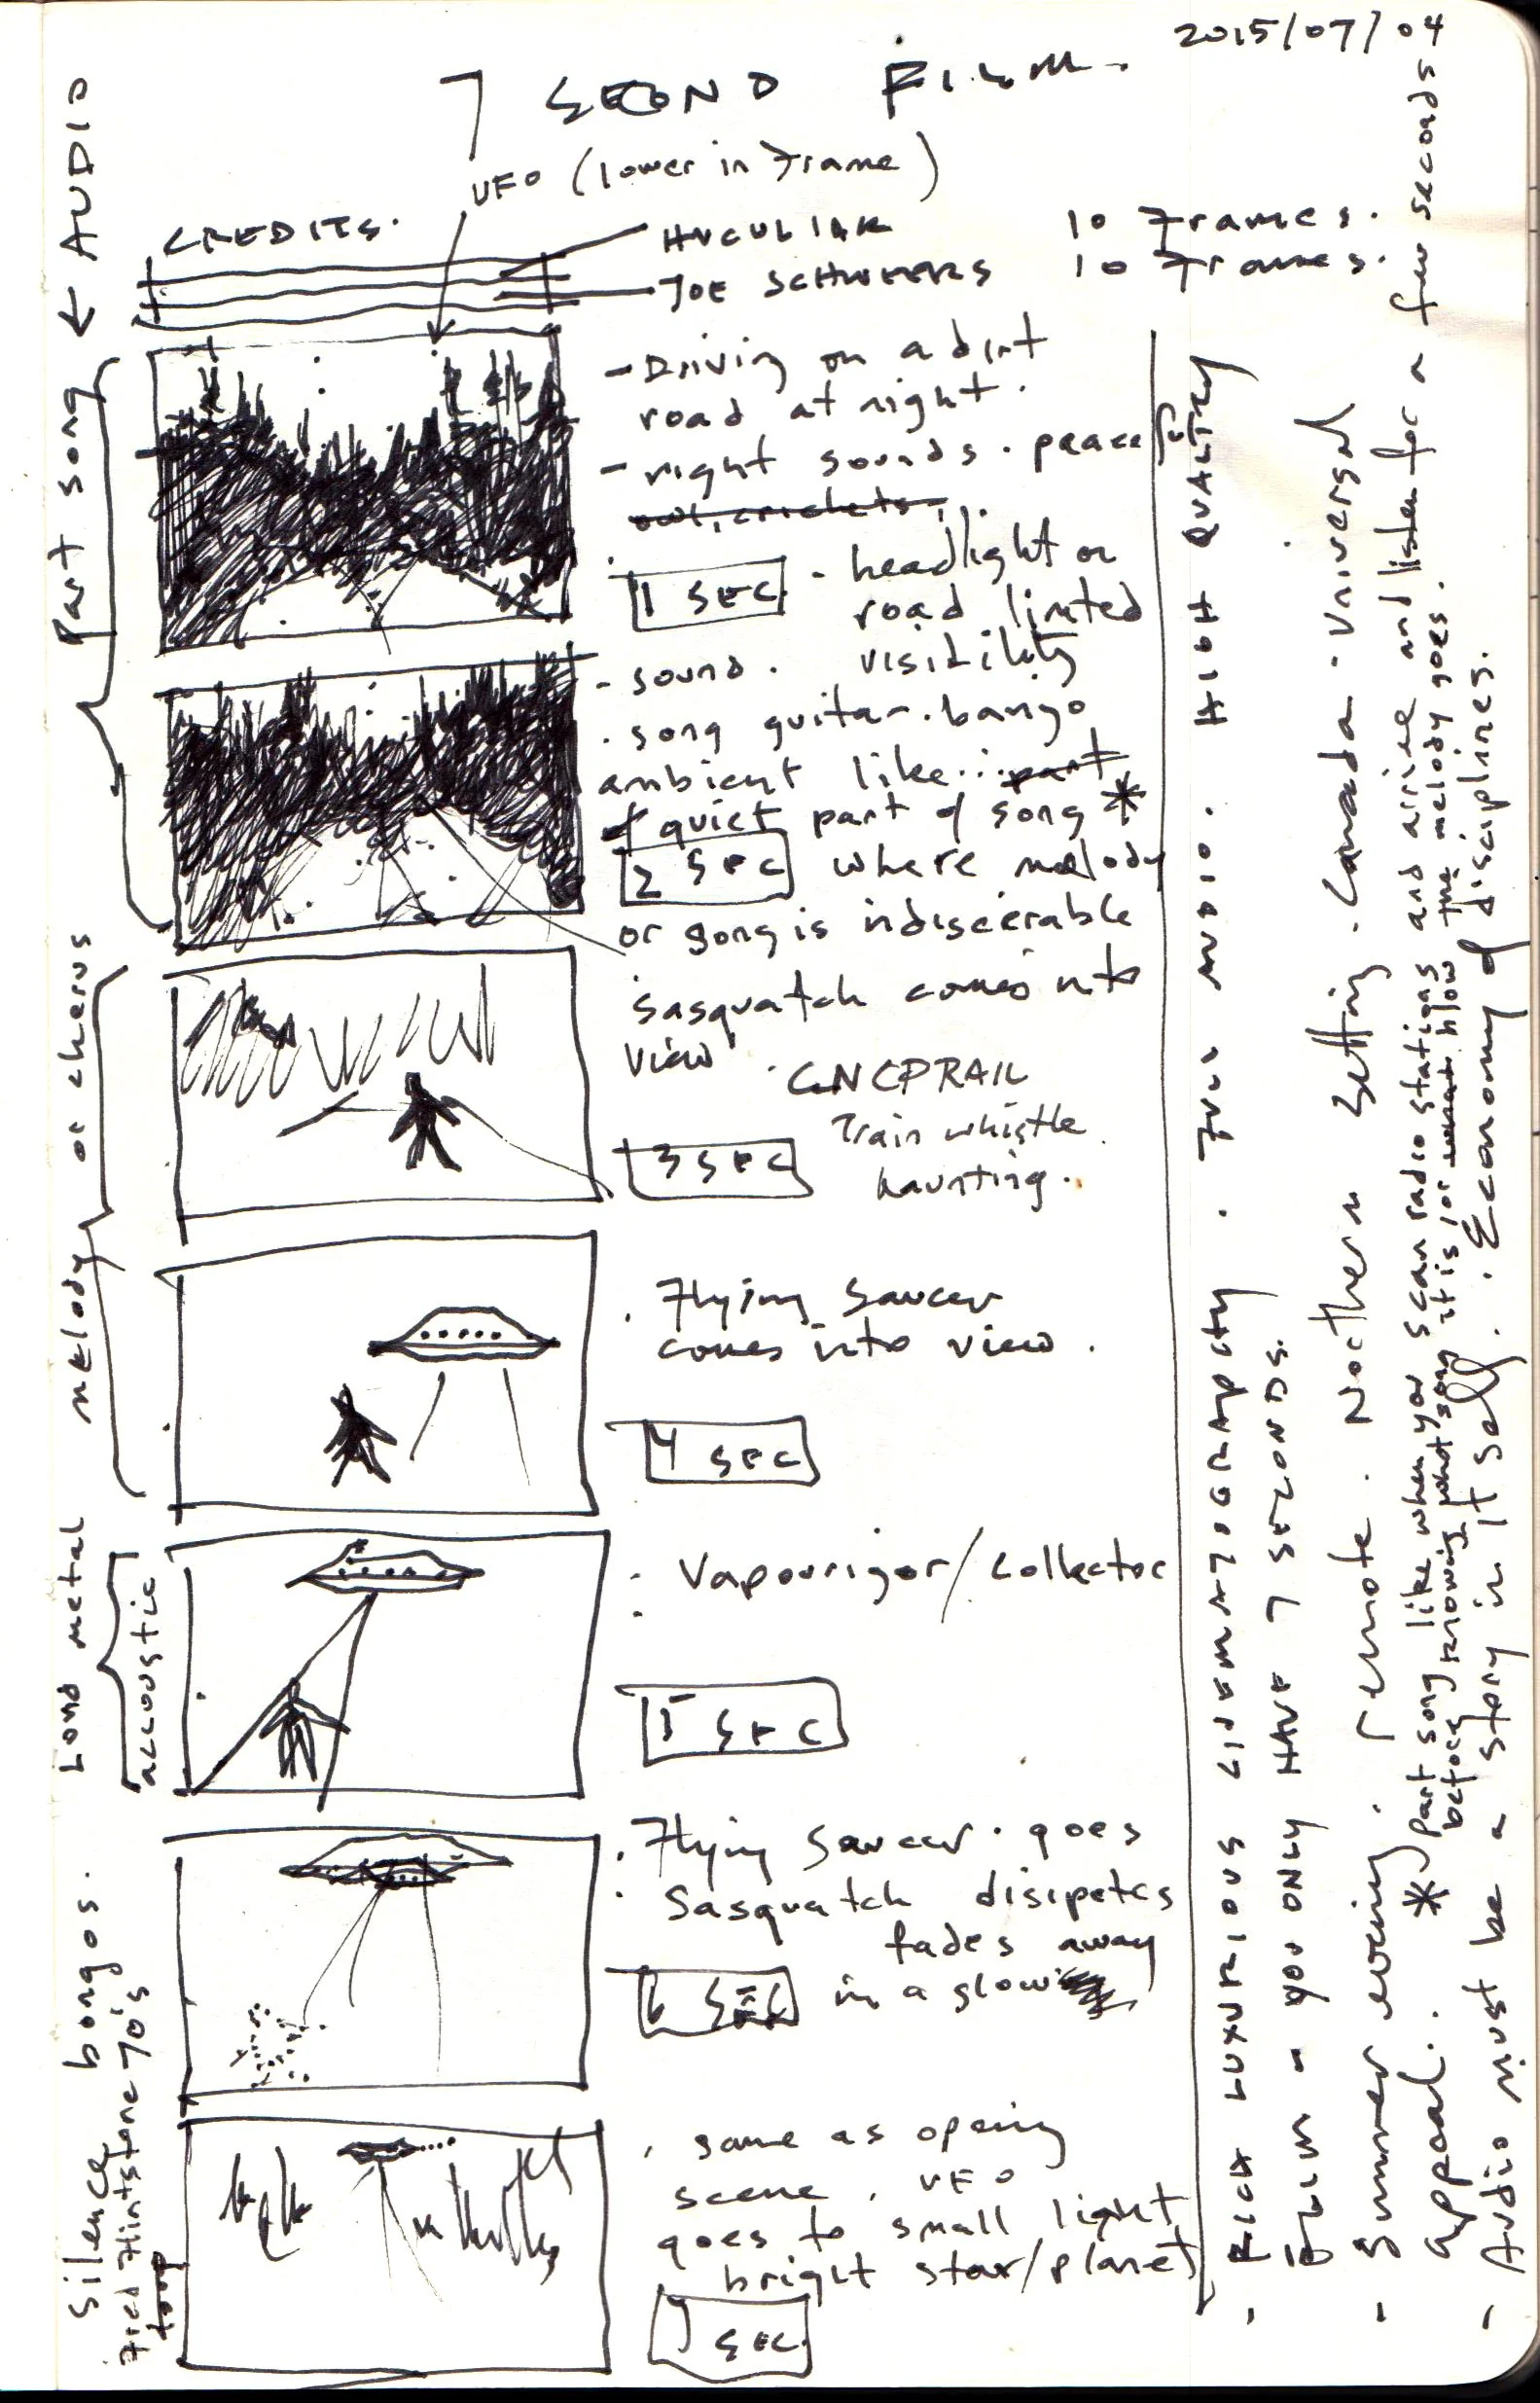 2015/07/04
7 SECOND FILM.
UFO (lower in frame)
CREDITS.
HUCULIAK 10 frames.
JOE SCHWEERS 10 frames.
← AUDIO
Part song
melody or chorus
Loud metal
accoustic
Silence bongos.
Fred Flintstone 70's
- Driving on a dirt
road at night.
- night sounds. peace
owl, crickets,
1 SEC
- headlight on
road limited
visibility
- sound.
. song guitar. bango
ambient like... part
of quiet part of song *
2 SEC
where melody
or song is indiscerable
. sasquatch comes into
view
. CNCPRAIL
Train whistle
haunting.
3 SEC
. Flying Saucer
comes into view.
4 SEC
: Vapourizor/Collector
5 SEC
. Flying Saucer. goes
. Sasquatch disipates
fades away
in a glow
6 SEC
. same as opening
scene. UFO
goes to small light
bright star/planet
7 SEC.
- RICH LUXURIOUS CINEMATOGRAPHY. FULL AUDIO. HIGH QUALITY
FILM - YOU ONLY HAVE 7 SECONDS.
- Summer evening. remote. Northern setting. Canada. Universal
appeal.
*) part song like when you scan radio stations and arrive and listen for a few seconds
before knowing what song it is, or what how the melody goes.
- Audio must be a story in it self. . Economy of disciplines.